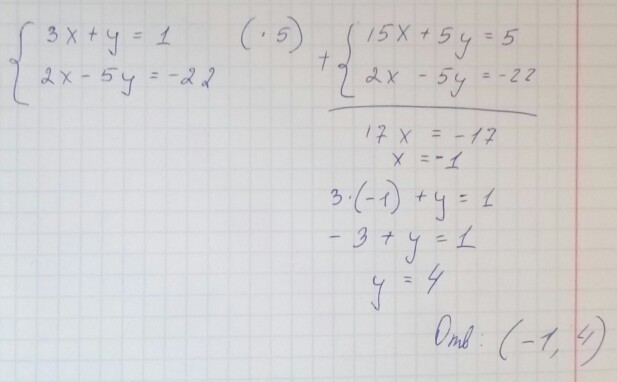 3x + y = 1 (· 5)
2x - 5y = -22
+ 15x + 5y = 5
2x - 5y = -22
17x = -17
x = -1
3·(-1) + y = 1
- 3 + y = 1
y = 4
Отв: (-1, 4)